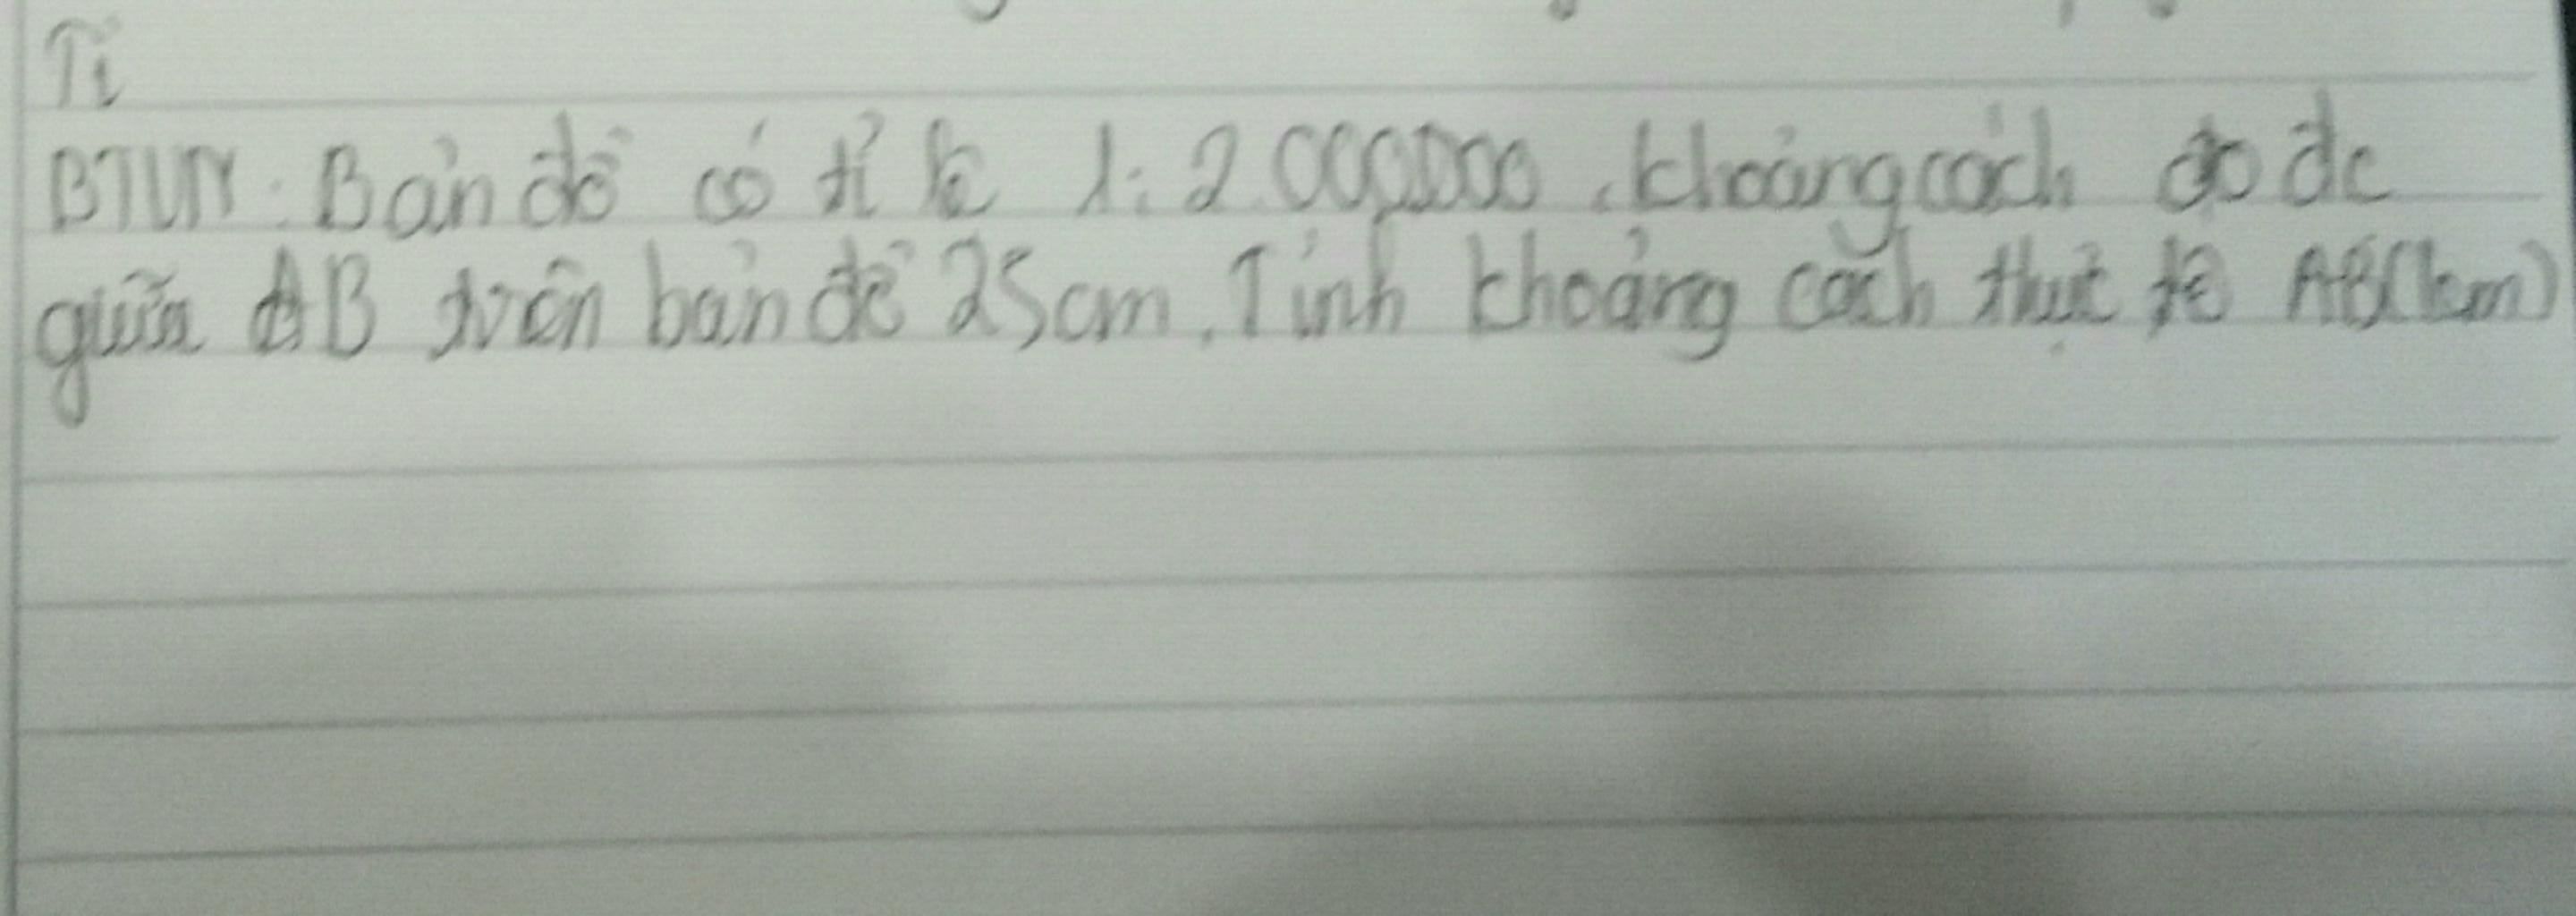 Tỉ
BTVN: Bản đồ có tỉ lệ 1: 2.000.000. Khoảng cách đo đc
giữa AB trên bản đồ 25cm. Tính khoảng cách thực tế AB(km)